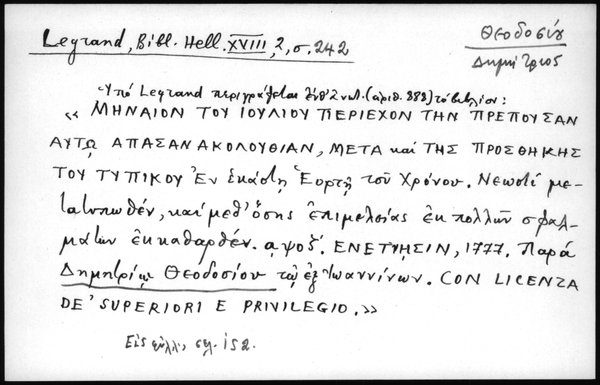 Legrand, Bibl. Hell. XVIII, 2, σ. 242
Θεοδοσίου
Δημήτριος
Ὑπὸ Legrand περιγράφεται (ἀριθ. 888) τὸ βιβλίον:
« ΜΗΝΑΙΟΝ ΤΟΥ ΙΟΥΛΙΟΥ ΠΕΡΙΕΧΟΝ ΤΗΝ ΠΡΕΠΟΥΣΑΝ
ΑΥΤῼ ΑΠΑΣΑΝ ΑΚΟΛΟΥΘΙΑΝ, ΜΕΤΑ καὶ ΤΗΣ ΠΡΟΣΘΗΚΗΣ
ΤΟΥ ΤΥΠΙΚΟΥ Ἐν ἑκάστῃ Ἑορτῇ τοῦ Χρόνου. Νεωστὶ με-
τατυπωθέν, καὶ μεθ' ὅσης ἐπιμελείας ἐκ πολλῶν σφαλ-
μάτων ἐκκαθαρθέν. αψοζ΄. ΕΝΕΤΙΗΣΙΝ, 1777. Παρὰ
Δημητρίῳ Θεοδοσίου τῷ ἐξ Ἰωαννίνων. CON LICENZA
DE' SUPERIORI E PRIVILEGIO. »
Εἰς φύλλ., σελ. 152.